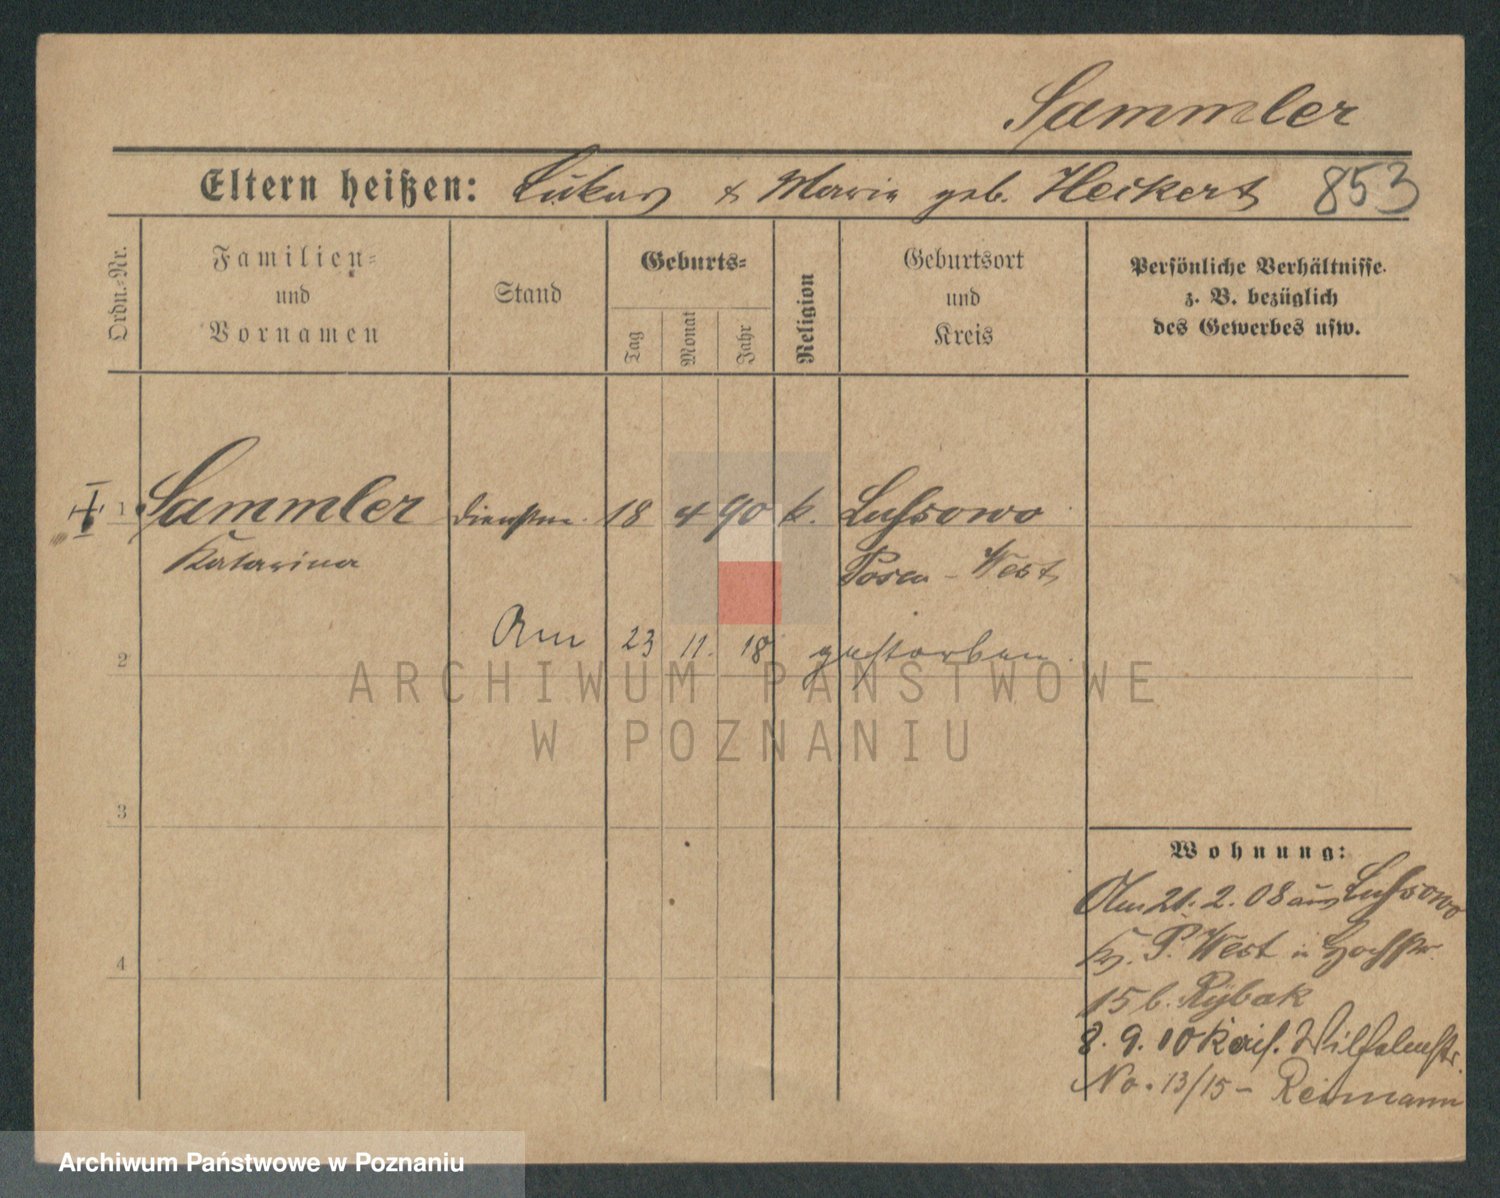 Sammler
Eltern heißen: Lukas & Maria geb. Heikert 853
Ordn.-Nr.
Familien-
und
Vornamen
Stand
Geburts-
Tag
Monat
Jahr
Religion
Geburtsort
und
Kreis
Persönliche Verhältnisse
z. B. bezüglich
des Gewerbes usw.
1 Sammler Dienstm. 18 4 90 k. Lussowo
Katarina Posen - West
Am 23 11. 18 gestorben.
2
3
4
Wohnung:
Am 21. 2. 08 aus Lussowo
Kr. P. West n Hochstr.
15 b. Rybak
8. 9. 10 Wilhelmstr.
No. 13/15 - Reimann
ARCHIWUM PAŃSTWOWE
W POZNANIU
Archiwum Państwowe w Poznaniu